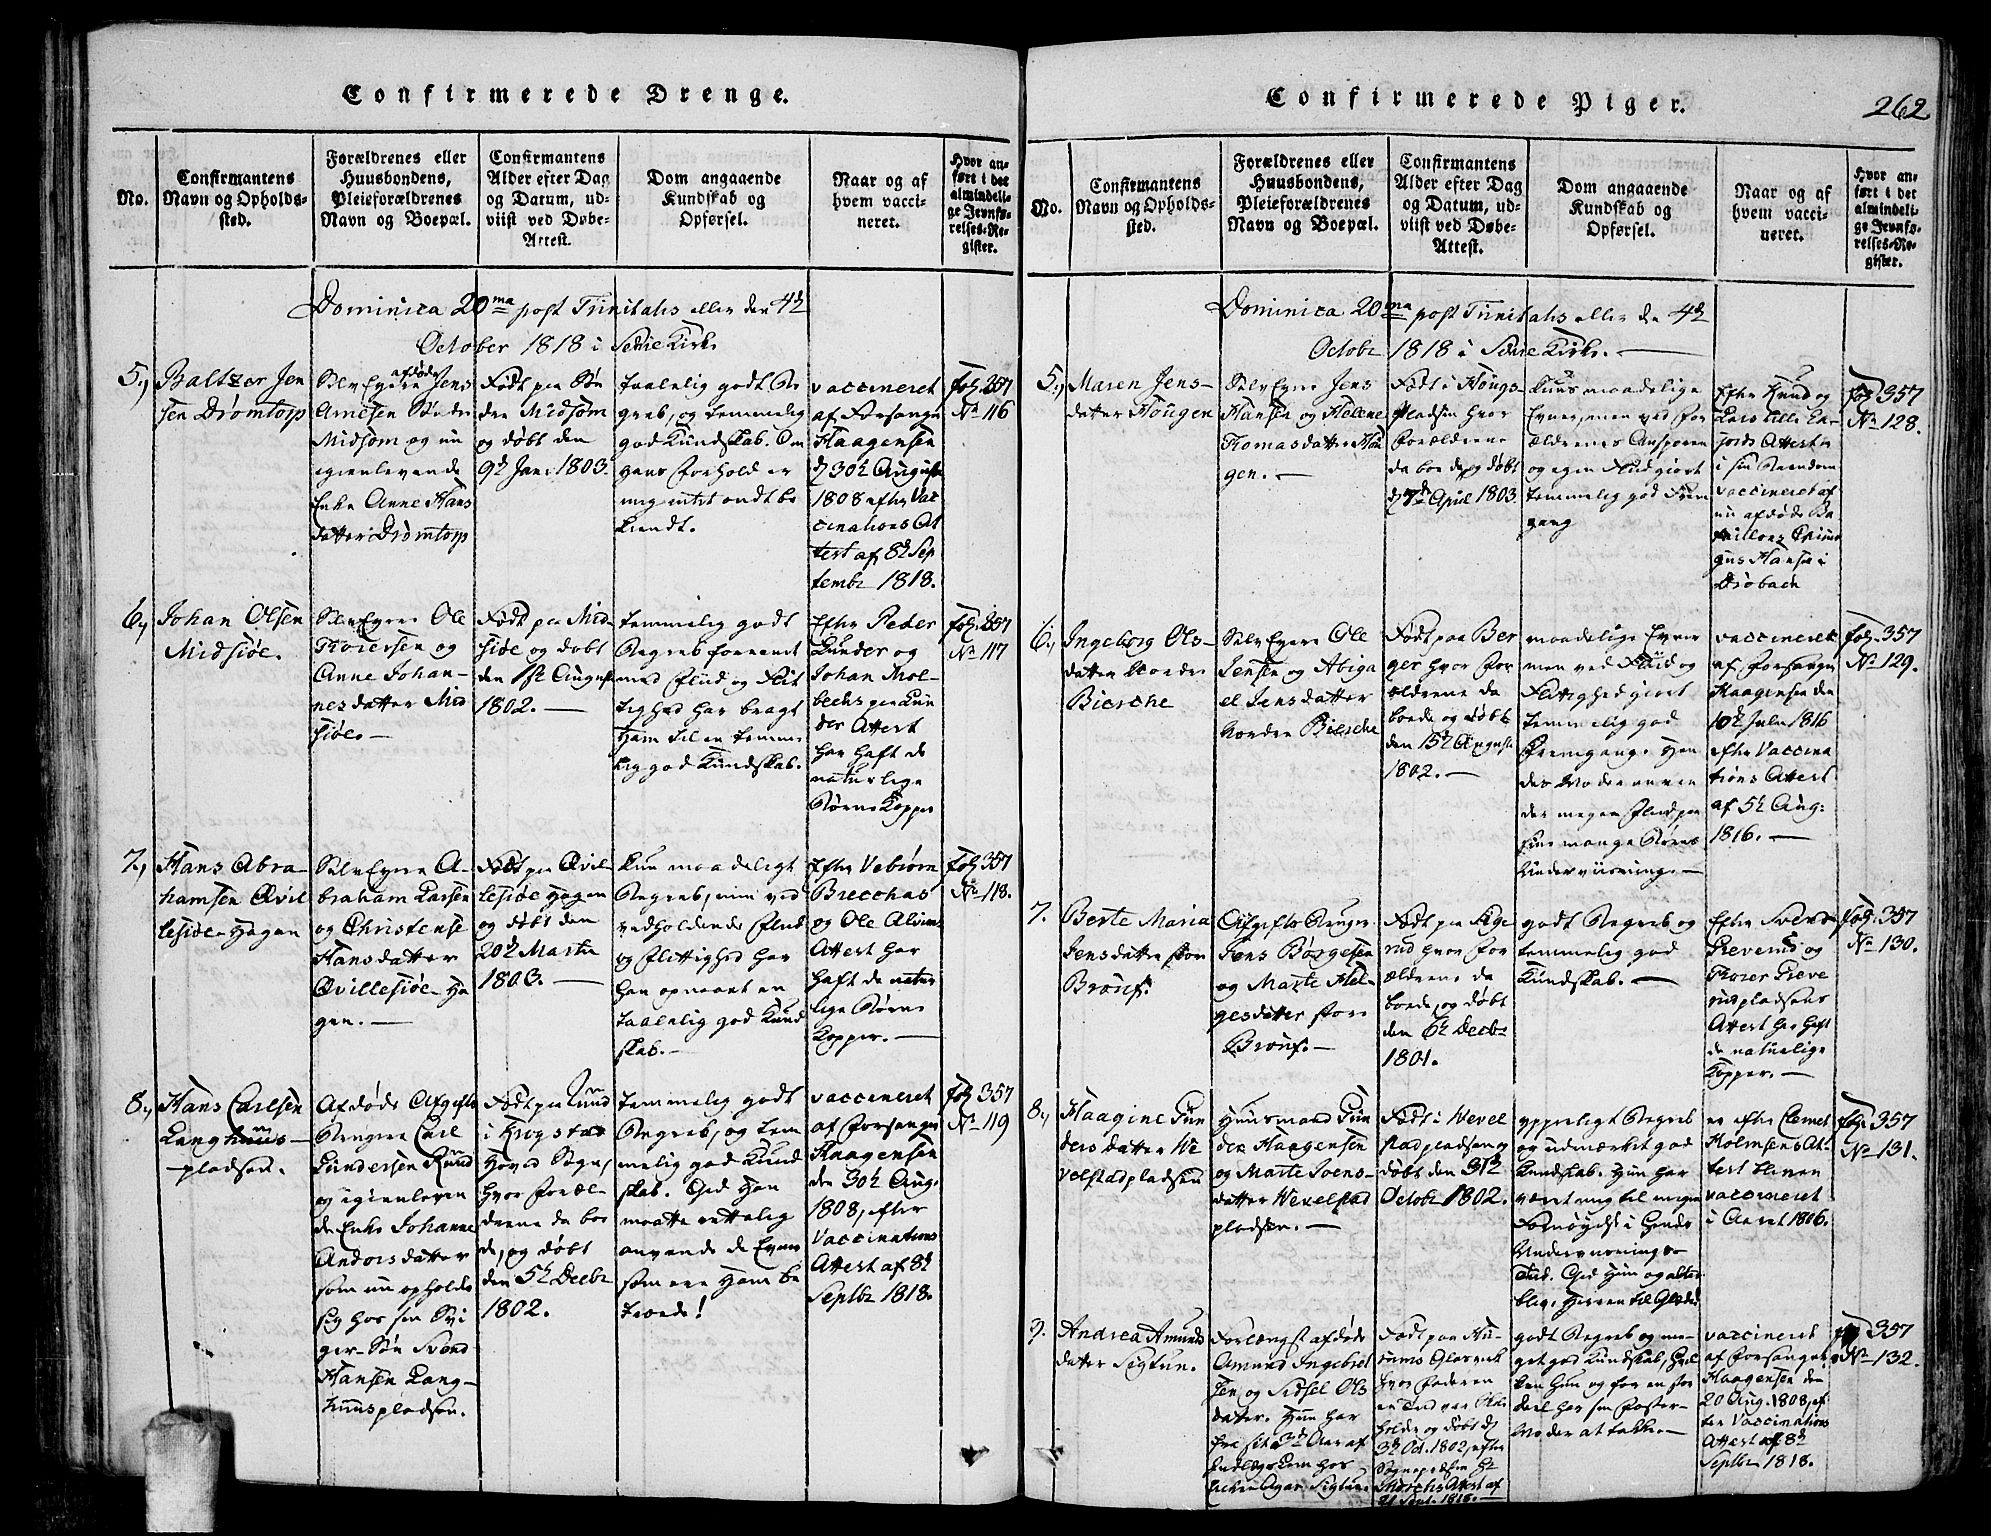 Confirmerede Drenge.
No.
Confirmantens
Navn og Opholds-
sted.
Forældrenes eller
Huusbondens,
Pleieforældrenes
Navn og Boepæl.
Confirmantens
Alder efter Dag
og Datum, ud-
viist ved Døbe-
Attest.
Dom angaaende
Kundskab og
Opførsel.
Naar og af
hvem vacci-
neret.
Hvor an-
ført i det
almindeli-
ge Jevnfø-
relses-Re-
gister.
Dominica 20ma post Trinitatis eller den 4d
October 1818 i Kirke
5.,
Baltzer Jen
sen Drømtorp
Selv Eyere afdøde Jens
Arnesen Søndre
Midsiøm og nu
igienlevende
Enke Anne Hans
datter Drømtorp
Født paa Sön
dre Midsiøm
og døbt den
9d Jan: 1803.
taalelig godt Be
greb, og temmelig
god Kundskab. Om
hans Forhold er
mig intet ondt be
kiendt.
vaccineret
af Forsanger
Haagensen
d 30d August
1808 efter Vac
cinations At
test af 8d Sep
tembr 1818.
fol. 357
No 116
6.,
Johan Olsen
Midsiøe.
Selv Eyere Ole
Thoresen og
Anne Johan-
nesdatter Mid
siøe.
Født paa Mid-
siøe og døbt
den 1st August
1802.
temmelig godt
Begreb forenet
med Fliid og Flit
tighed har bragt
Ham til en temme
lig god Kundskab.
Efter Peder
Gunder og
Johan Mol-
bechs
Attest
har haft de
naturlige
Børne Kopper
fol. 357
No 117
7.,
Hans Abra-
hamsen Qvil
lesiøe-Hagen
Selv Eyere A-
braham Larsen
og Christense
Hansdatter
Qvillesiøe-Ha
gen.
Født paa Qvil-
lesiøe Hagen
og døbt den
20d Martii
1803.
kun maadeligt
Begreb, men ved
vedholdende Fliid
og Flittighed har
han opnaaet en
taalelig god Kund
skab.
Efter Vebiørn
og Ole
Attest har
haft de natur
lige Børne
Kopper.
fol 357
No 118.
8.,
Hans Carlsen
Langhuus-
pladsen.
Afdøde Afgifts
Brugere Carl
Gundersen Ruud
og igienleven
de Enke Johanne
Andersdatter
som nu opholder
sig hos sin Svi
ger-Søn Svend
Hansen Lang-
huuspladsen.
Født paa Ruud
i Krogstad
Hoved Sogn,
hvor Foræl-
drene da boe
de, og døbt
den 5d Decbr
1802.
temmelig godt
Begreb, og tem
melig god Kund
skab. Gid Han
maatte rettelig
anvende de Evner
som ere Ham be
troede!
vaccineret
af Forsanger
Haagensen
den 30d Aug.
1808, efter
Vaccinations
Attest af 8d
Septbr 1818.
fol. 357
No 119
Confirmerede Piger.
262
No.
Confirmantens
Navn og Opholds-
sted.
Forældrenes eller
Huusbondens,
Pleieforældrenes
Navn og Boepæl.
Confirmantens
Alder efter Dag
og Datum, ud-
viist ved Døbe-
Attest.
Dom angaaende
Kundskab og
Opførsel.
Naar og af
hvem vacci-
neret.
Hvor an-
ført i det
almindeli-
ge Jevnfø-
relses-Re-
gister.
Dominica 20ma post Trinitatis eller de 4d
Octobr 1818 i Kirke.
5.,
Maren Jens-
datter Hougen
Selv Eyere Jens
Hansen og Helene
Thomasdatter Hou
gen.
Født i Hougs-
pladsen hvor
Forældrene
da boede, og døbt
d 7de April 1803.
kuns maadelige
Evner, men ved For
ældrenes Ansporen
og egen Fliid giort
temmelig god Frem
gang
Efter Knud og
Lars
Attest er
i sin Barndom
vaccineret af
nu afdøde Ba
taillons Chirur
gus Hansen i
Drøbach
fol 357
No 128.
6.,
Ingeborg Ols-
datter Nordre
Biersche
Selv Eyere Ole
Jensen og Abiga
el Jensdatter
Nordre Biersche
Født paa Ber
ger hvor For
ældrene da
boede og døbt
den 15d August
1802.
maadelige Evner
men ved Fliid og
Flittighed giort
temmelig god
Fremgang. Hen
des Moder anven
der megen Fliid paa
sine mange Børns
Underviisning.
vaccineret
af Forsanger
Haagensen den
10d Julii 1816
efter Vaccina
tions Attest
af 5d Aug:
1816.
fol. 357
No 129.
7.
Berte Maria
Jensdatter store
Brouf.
Afgifts Bruger
Jens Børgesen
og Marte Hel-
gesdatter store
Brouf.
Født paa
rud hvor For
ældrene da
boede, og døbt
den 6d Decbr
1801.
godt Begreb og
temmelig god
Kundskab.
Efter
og
Thorer Greve
rudpladsens
Attest har haft
de naturlige
Kopper.
fol. 357
No 130.
8.,
Haagine Gun
dersdatter We
velstadpladsen
Huusmand Gun
der Haagensen
og Marte Svens-
datter Wevelstad
pladsen.
Født i Wevel
stadpladsen og
døbt den 31d
Octobr 1802.
ypperligt Begreb
og udmærket god
Kundskab. Hun har
været mig til megen
Fornøyelse i Hendes
Underviisnings-
Tid. Gid Hun og altid
blive Herren til Glæde!
er efter Clemet
Holmsens At-
test bleven
vaccineret
i Aaret 1806.
fol. 357
No 131.
9.
Andrea Amund
datter Sigtun.
Forlængst afdøde
Amund Ingebret
sen og Sidsel Ols
datter. Hun har
fra sit 3d Aar af
hos
Sigtun
Født paa Hu-
rums Glasværk
hvor Faderen
holdt og døbt d
3d Oct. 1802, efter
Attest af
21 Sept. 1818.
godt Begreb og me-
get god Kundskab, hvil
ken hun og for en stor
deel har sin Foster-
Moder at takke.
vaccineret
af Forsanger
Haagensen den
20 Aug. 1808, ef
ter Vaccinations
Attest af 8d
Septbr 1818.
fol 357
No 132.